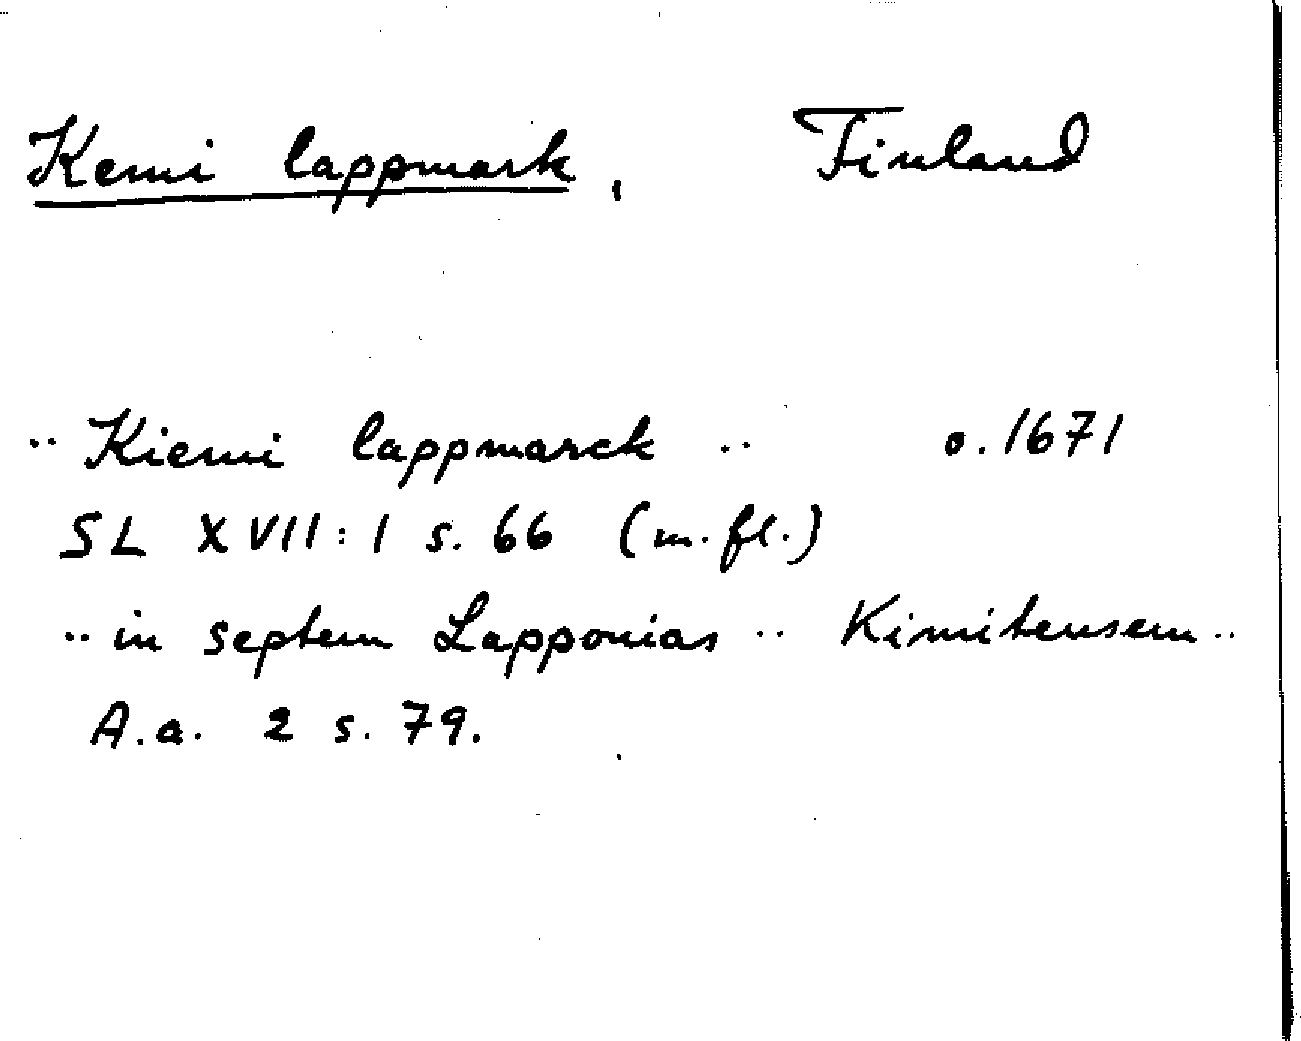 Kemi lappmark, Finland
.. Kiemi lappmarck .. o. 1671
SL XVII:1 s. 66 (m.fl.)
.. in septem Lapponias .. Kimitensem ..
A.a. 2 s. 79.